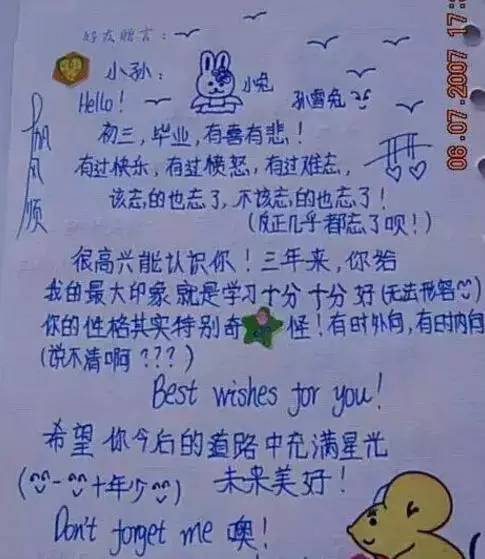 好友赠言：
小孙：
小兔
孙雪兔
Hello！
帆风顺
初三，毕业，有喜有悲！
有过快乐，有过愤怒，有过难忘，
该忘的也忘了，不该忘的也忘了！
(反正几乎都忘了呗！)
很高兴能认识你！三年来，你给
我的最大印象就是学习十分十分好(无法形容)
你的性格其实特别奇怪！有时外向，有时内向
(说不清啊？？？)
Best wishes for you！
希望你今后的道路中充满星光
(一十年少)
未来美好！
Don't forget me 噢！
06.07.2007 17: